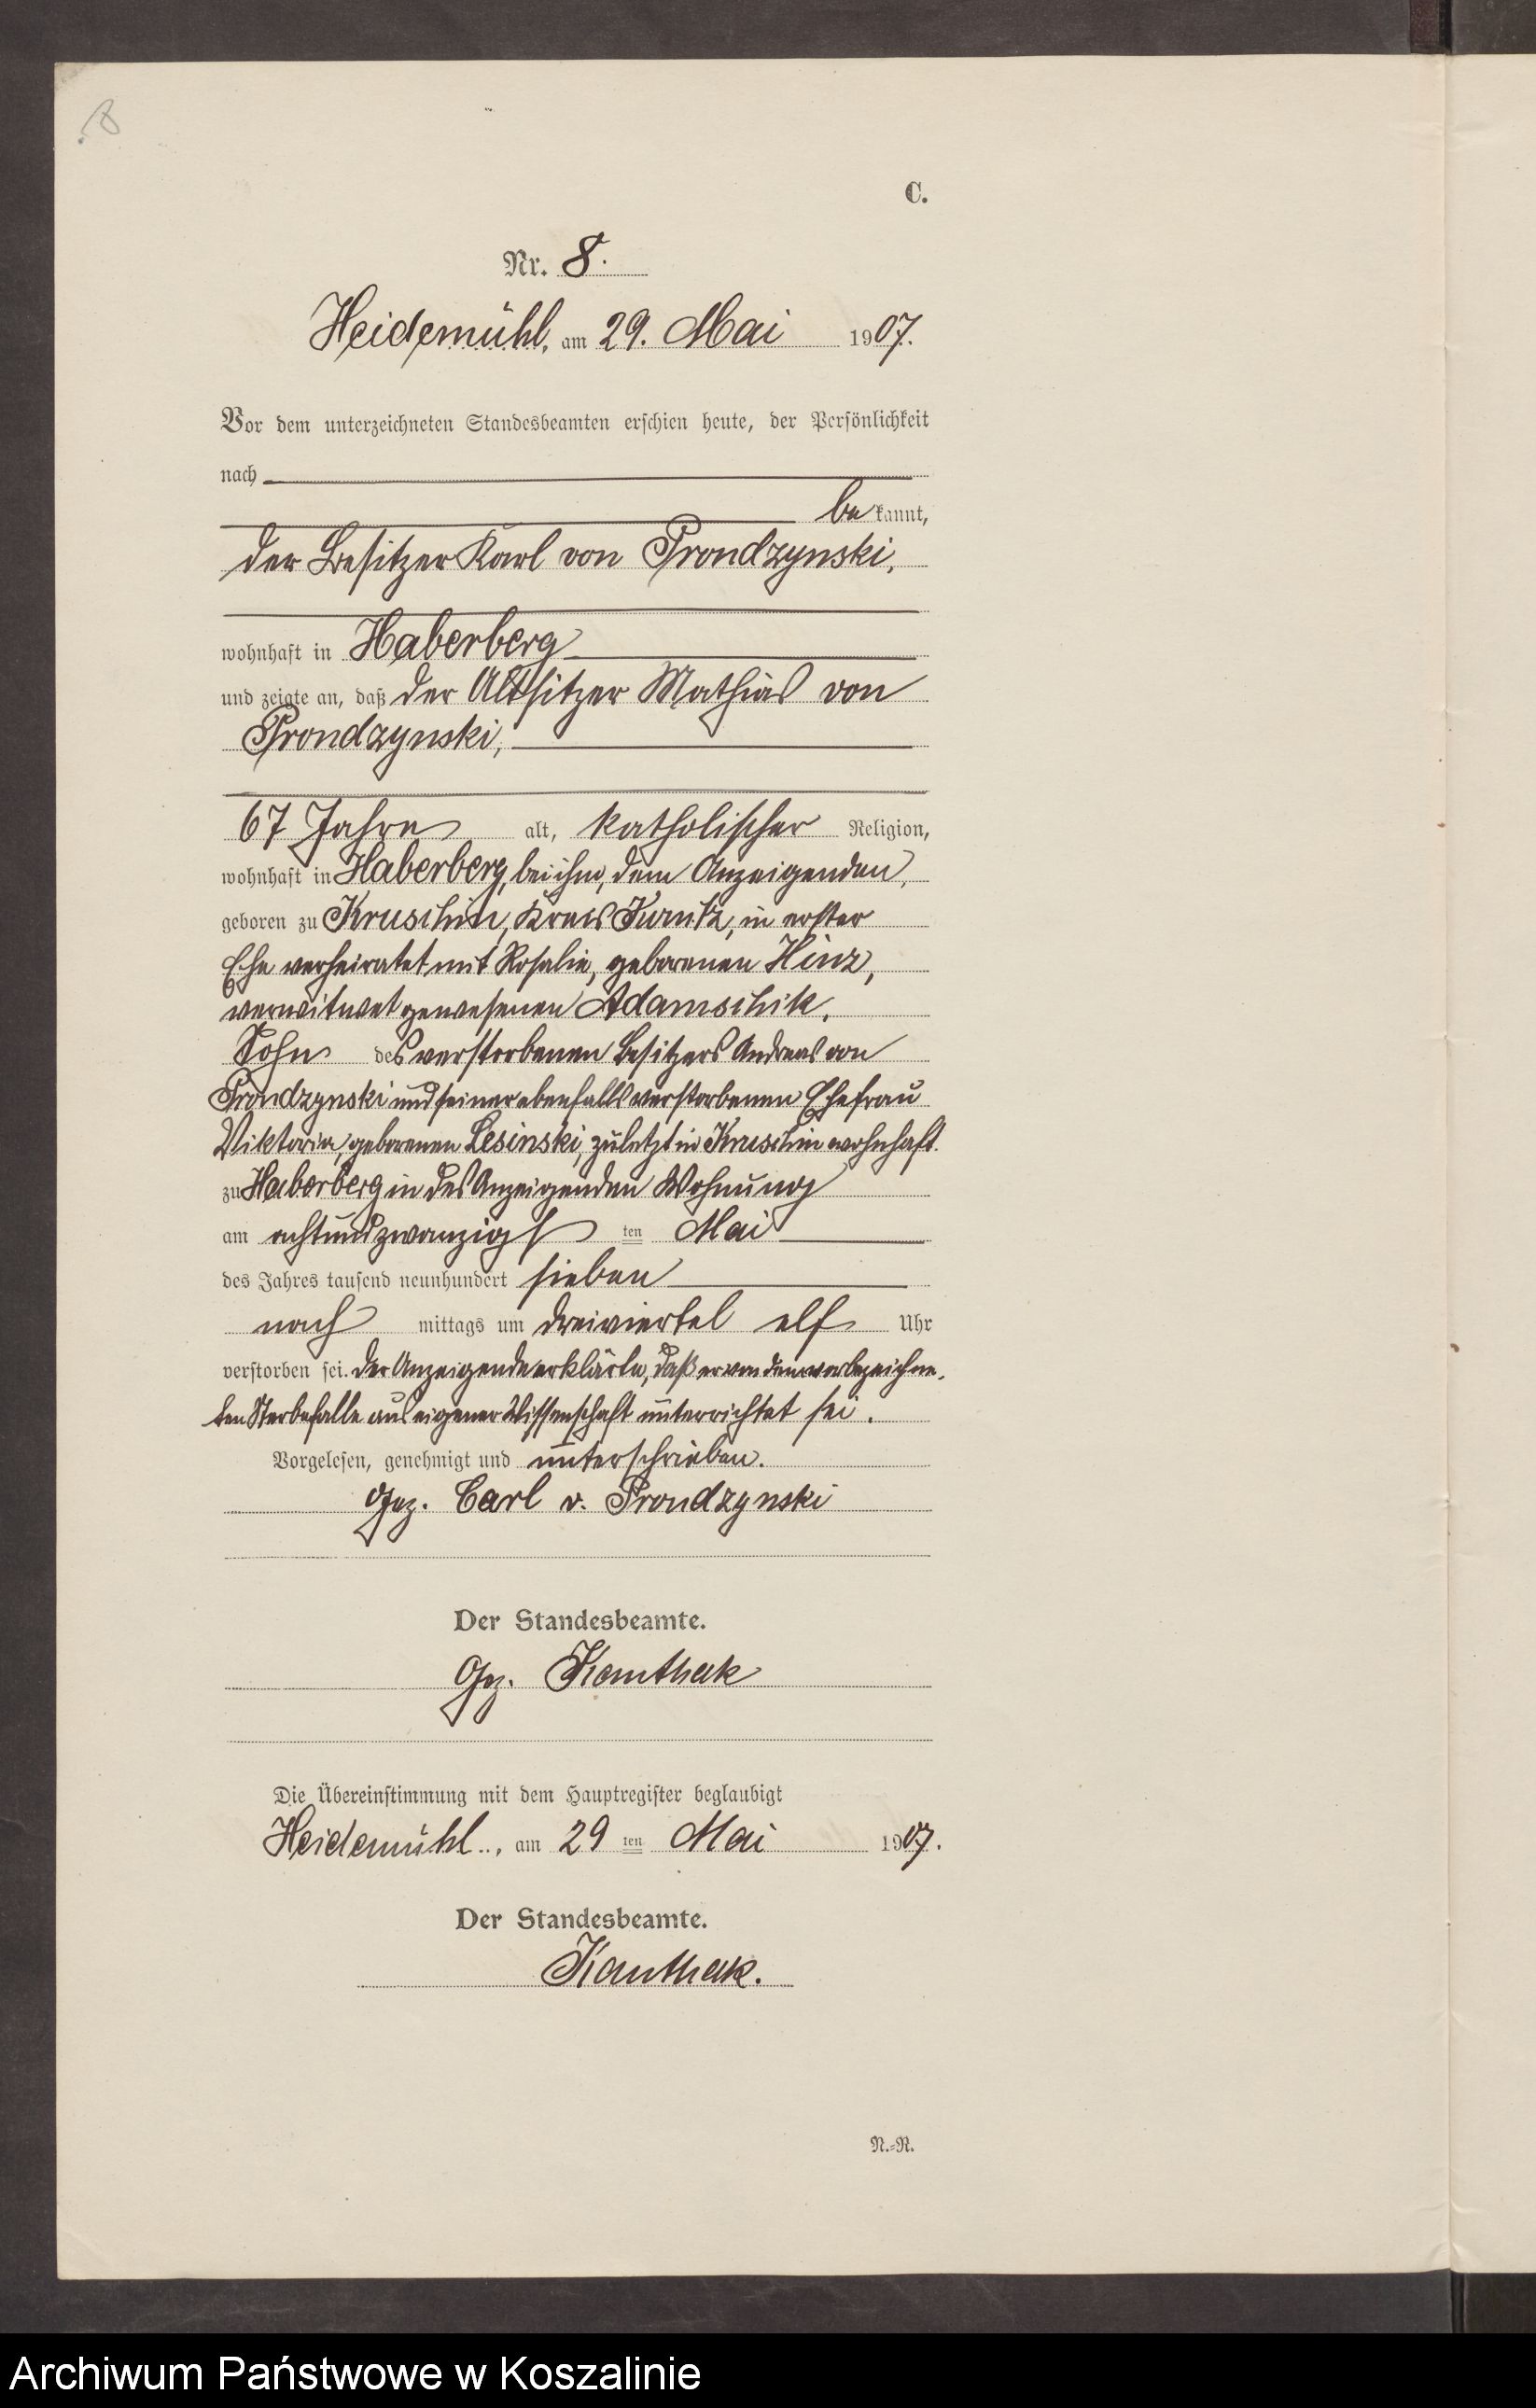 8
C.
Nr. 8.
Heidemühl, am 29. Mai 1907.
Vor dem unterzeichneten Standesbeamten erschien heute, der Persönlichkeit
nach
be kannt,
der Besitzer Karl von Prondzynski,
wohnhaft in Haberberg
und zeigte an, daß der Altsitzer Mathias von
Prondzynski,
67 Jahre alt, katholischer Religion,
wohnhaft in Haberberg, bei ihm, dem Anzeigenden,
geboren zu Kruschin, Kreis Konitz, in erster
Ehe verheiratet mit Rosalie, geborenen Hinz,
verwitwet gewesenen Adamschik,
Sohn des verstorbenen Besitzers Andreas von
Prondzynski und seiner ebenfalls verstorbenen Ehefrau
Viktoria, geborenen Lesinski, zuletzt in Kruschin wohnhaft.
zu Haberberg in des Anzeigenden Wohnung
am achtundzwanzigsten Mai
des Jahres tausend neunhundert sieben
nach mittags um dreiviertel elf Uhr
verstorben sei. Der Anzeigende erklärte, daß er von dem vorbezeichne-
ten Sterbefalle aus eigener Wissenschaft unterrichtet sei.
Vorgelesen, genehmigt und unterschrieben.
Gez. Carl v. Prondzynski
Der Standesbeamte.
Gez. Kanthak
Die Übereinstimmung mit dem Hauptregister beglaubigt
Heidemühl, am 29 ten Mai 1907.
Der Standesbeamte.
Kanthak.
N.-R.
Archiwum Państwowe w Koszalinie